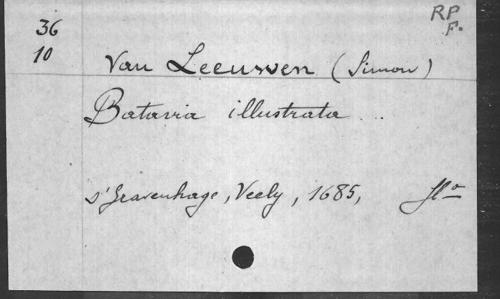 RP
F.
36
10
Van Leeuwen (Simon)
Batavia illustrata ...
s'Gravenhage, Veely, 1685, flo